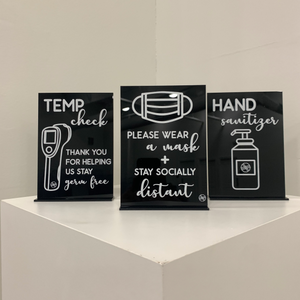 TEMP
check
THANK YOU
FOR HELPING
US STAY
germ free
PLEASE WEAR
a mask
+
STAY SOCIALLY
distant
HAND
sanitizer